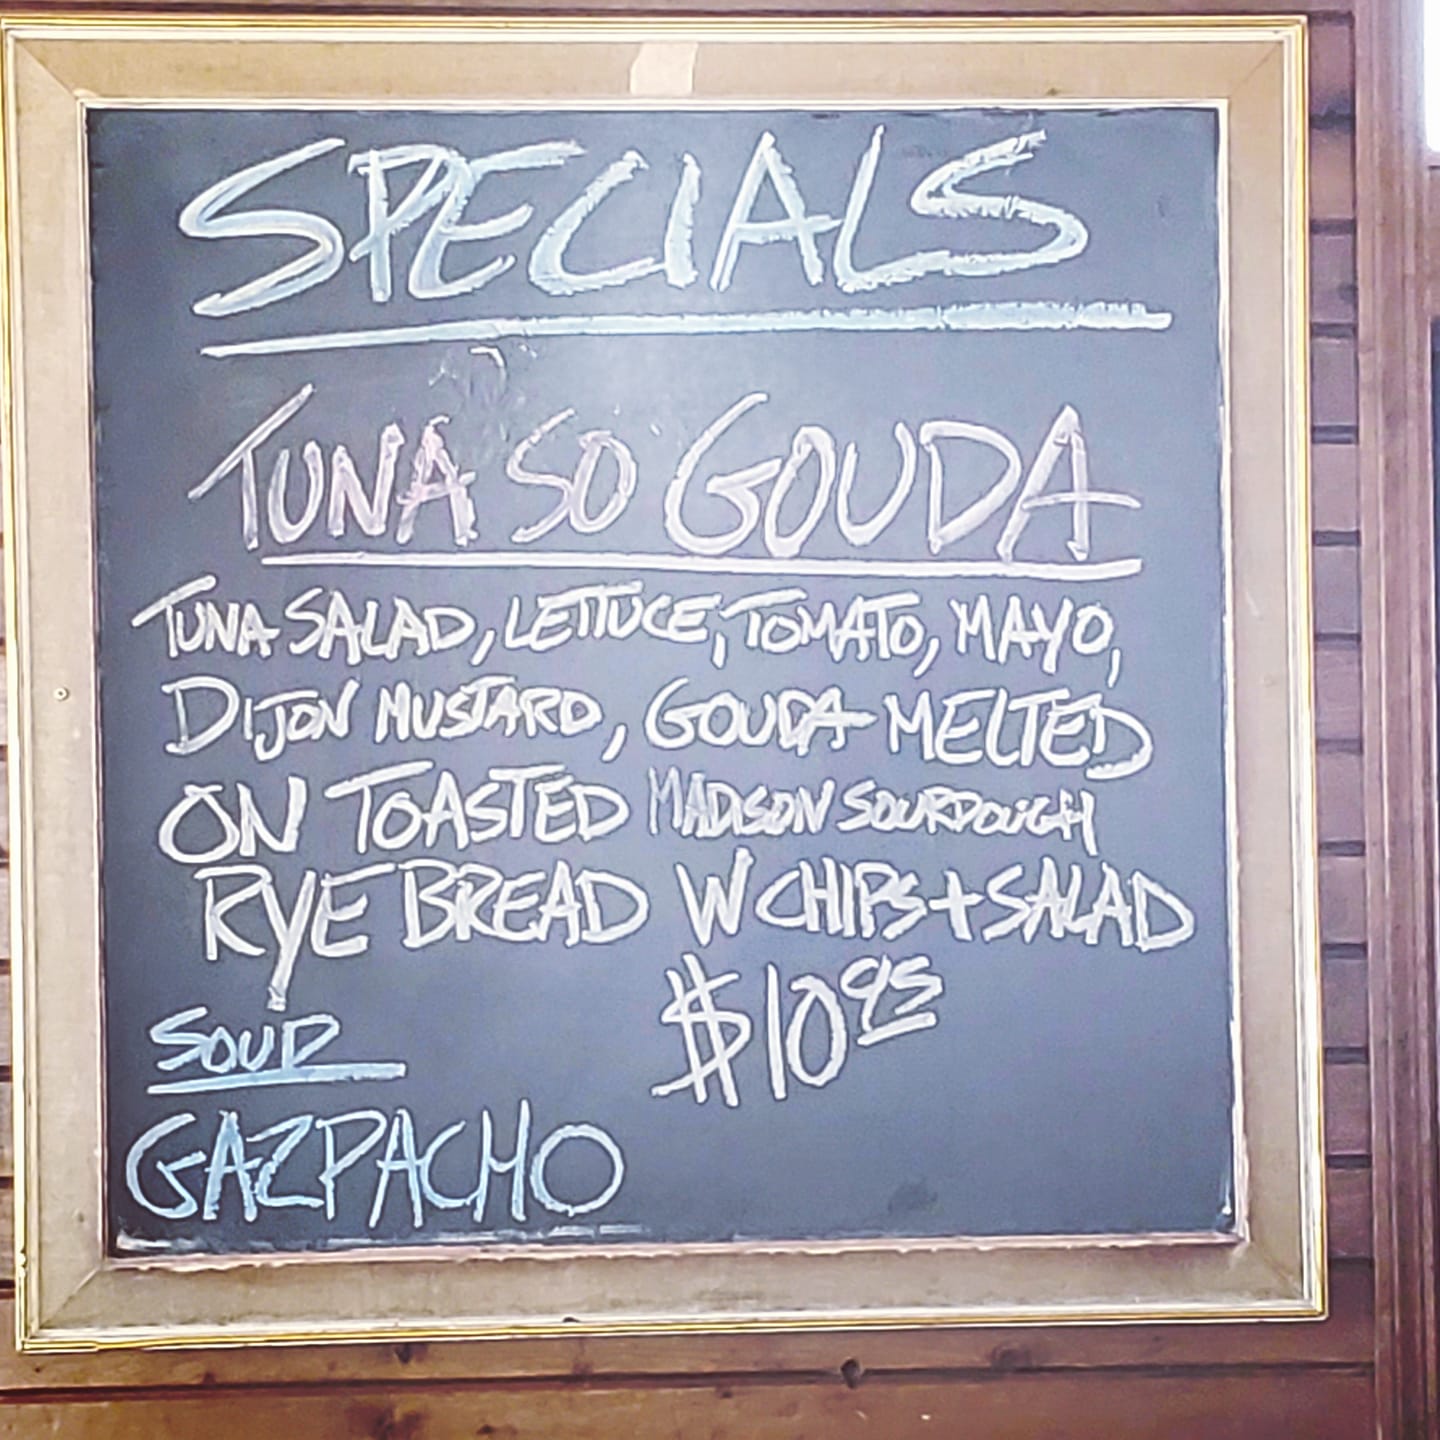 SPECIALS
TUNA SO GOUDA
TUNA SALAD, LETTUCE, TOMATO, MAYO,
DIJON MUSTARD, GOUDA MELTED
ON TOASTED MADISON SOURDOUGH
RYE BREAD W CHIPS + SALAD
$10.95
SOUP
GAZPACHO